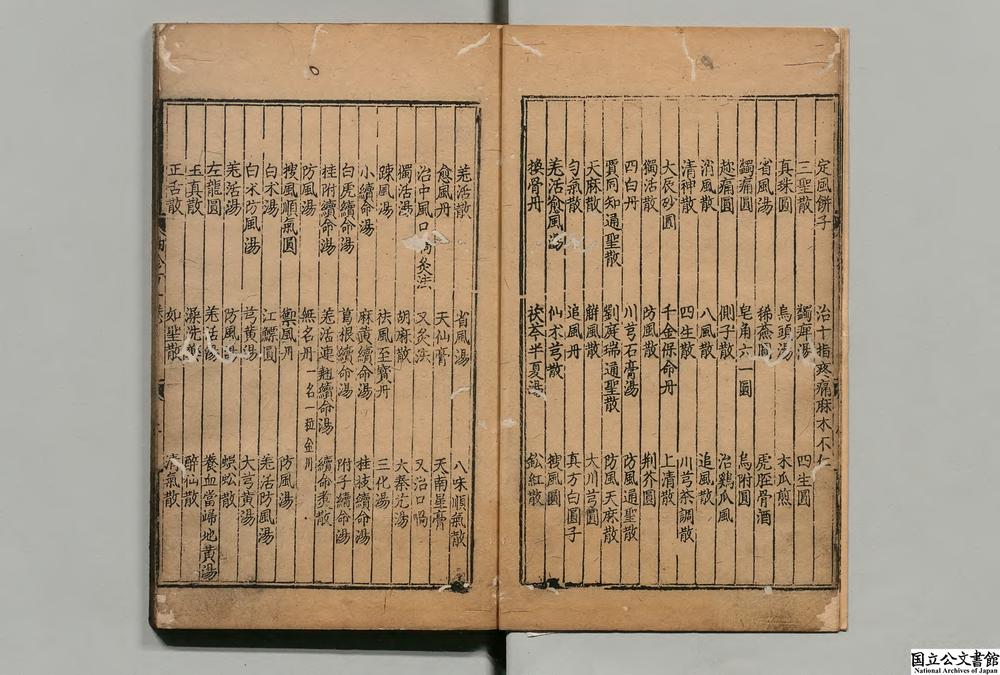 定風餅子 治十指疼痛麻木不仁
三聖散 蠲痺湯 四生圓
真珠圓 烏頭湯 木瓜煎
省風湯 豨薟圓 虎脛骨酒
蠲痛圓 皂角六一圓 烏附圓
趂痛圓 側子散 治鷄瓜風
消風散 八風散 追風散
清神散 四生散 川芎茶調散
大辰砂圓 千金保命丹 上清散
獨活散 防風散 荆芥圓
四白丹 川芎石膏湯 防風通聖散
賈同知通聖散 劉庭瑞通聖散 防風天麻散
天麻散 辭風散 大川芎圓
匀氣散 追風丹 真方白圓子
羌活愈風湯 仙朮芎散 搜風圓
換骨丹 茯苓半夏湯 鈆紅散
羌活散 省風湯 八味順氣散
愈風丹 天仙膏 天南星膏
治中風口喎灸法 又灸法 又治口喎
獨活湯 胡麻散 六秦艽湯
踈風湯 祛風至寳丹 三化湯
小續命湯 麻黄續命湯 桂枝續命湯
白虎續命湯 葛根續命湯 附子續命湯
桂附續命湯 羌活連翹續命湯 續命煑散
防風湯 無名丹 一名一粒金丹
搜風順氣圓 禦風丹 防風湯
白朮湯 江鰾圓 羌活防風湯
白朮防風湯 芎黄湯 大芎黄湯
羌活湯 防風湯 蜈蚣散
左龍圓 羌活湯 養血當歸地黄湯
玉真散 澡洗藥 醉仙散
正舌散 如聖散 清氣散
国立公文書館
National Archives of Japan